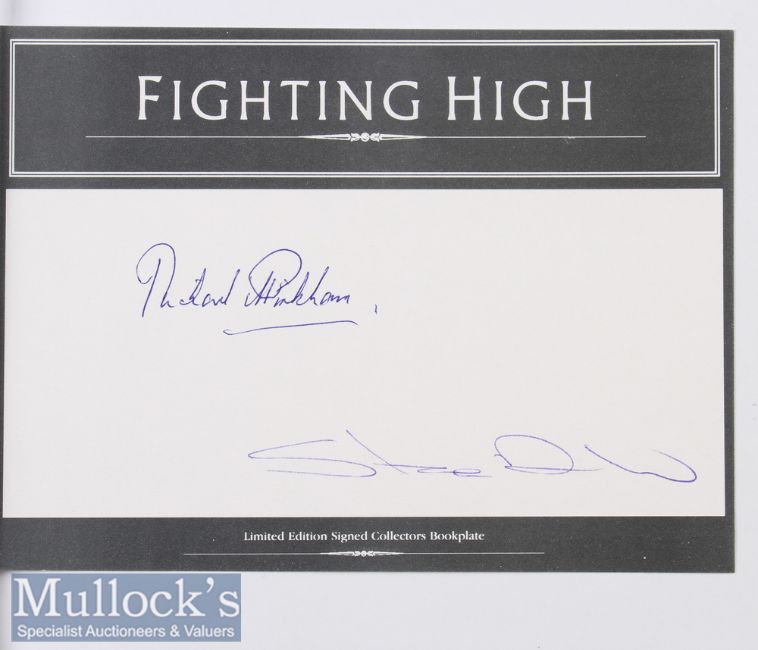 FIGHTING HIGH
Richard Pinkham
Limited Edition Signed Collectors Bookplate
Mullock's
Specialist Auctioneers & Valuers